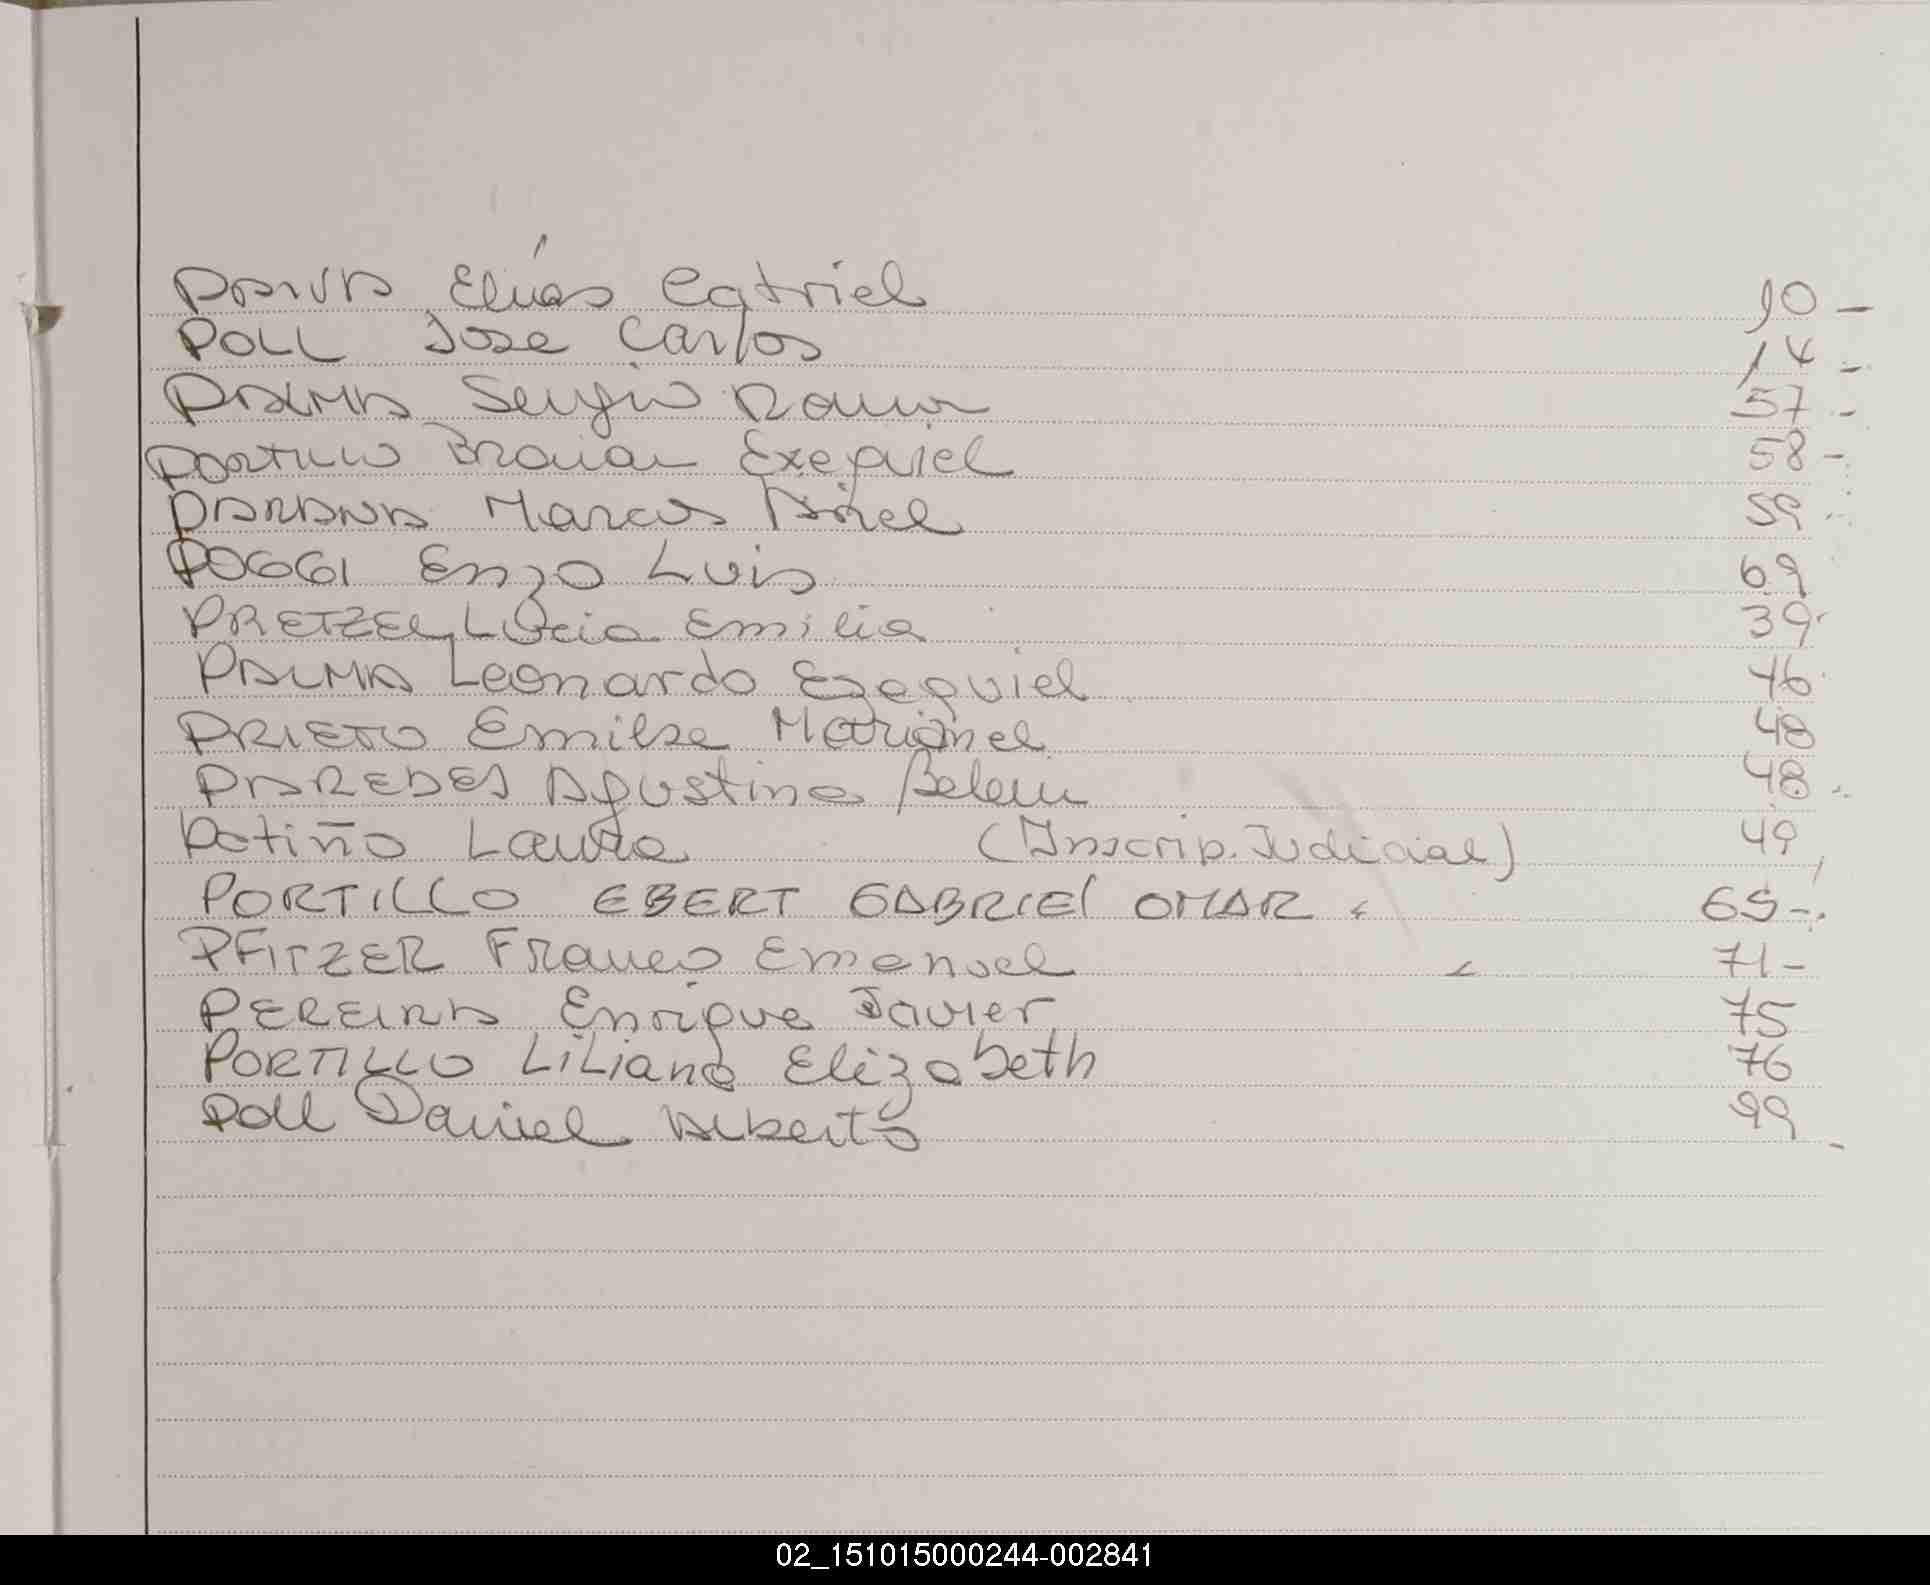 PAIVA Elías Catriel 10 -
POLL Jose Carlos 14 -
PALMA Sergio Ramon 57 -
PORTILLO Braian Exequiel 58 -
PARANA Marcos Ariel 59 -
POGGI Enzo Luis 69
PRETZEL Lucia Emilia 39
PALMA Leonardo Ezequiel 46
PRIETO Emilse Marianel 48
PAREDES Agustina Belen 48
Patiño Laura (Inscrip. Judicial) 49
PORTILLO EBERT GABRIEL OMAR 65 -
PFITZER Franco Emanuel 71 -
PEREIRA Enrique Javier 75
PORTILLO LiLiana Elizabeth 76
Poll Daniel Alberto 99 -
02_151015000244-002841